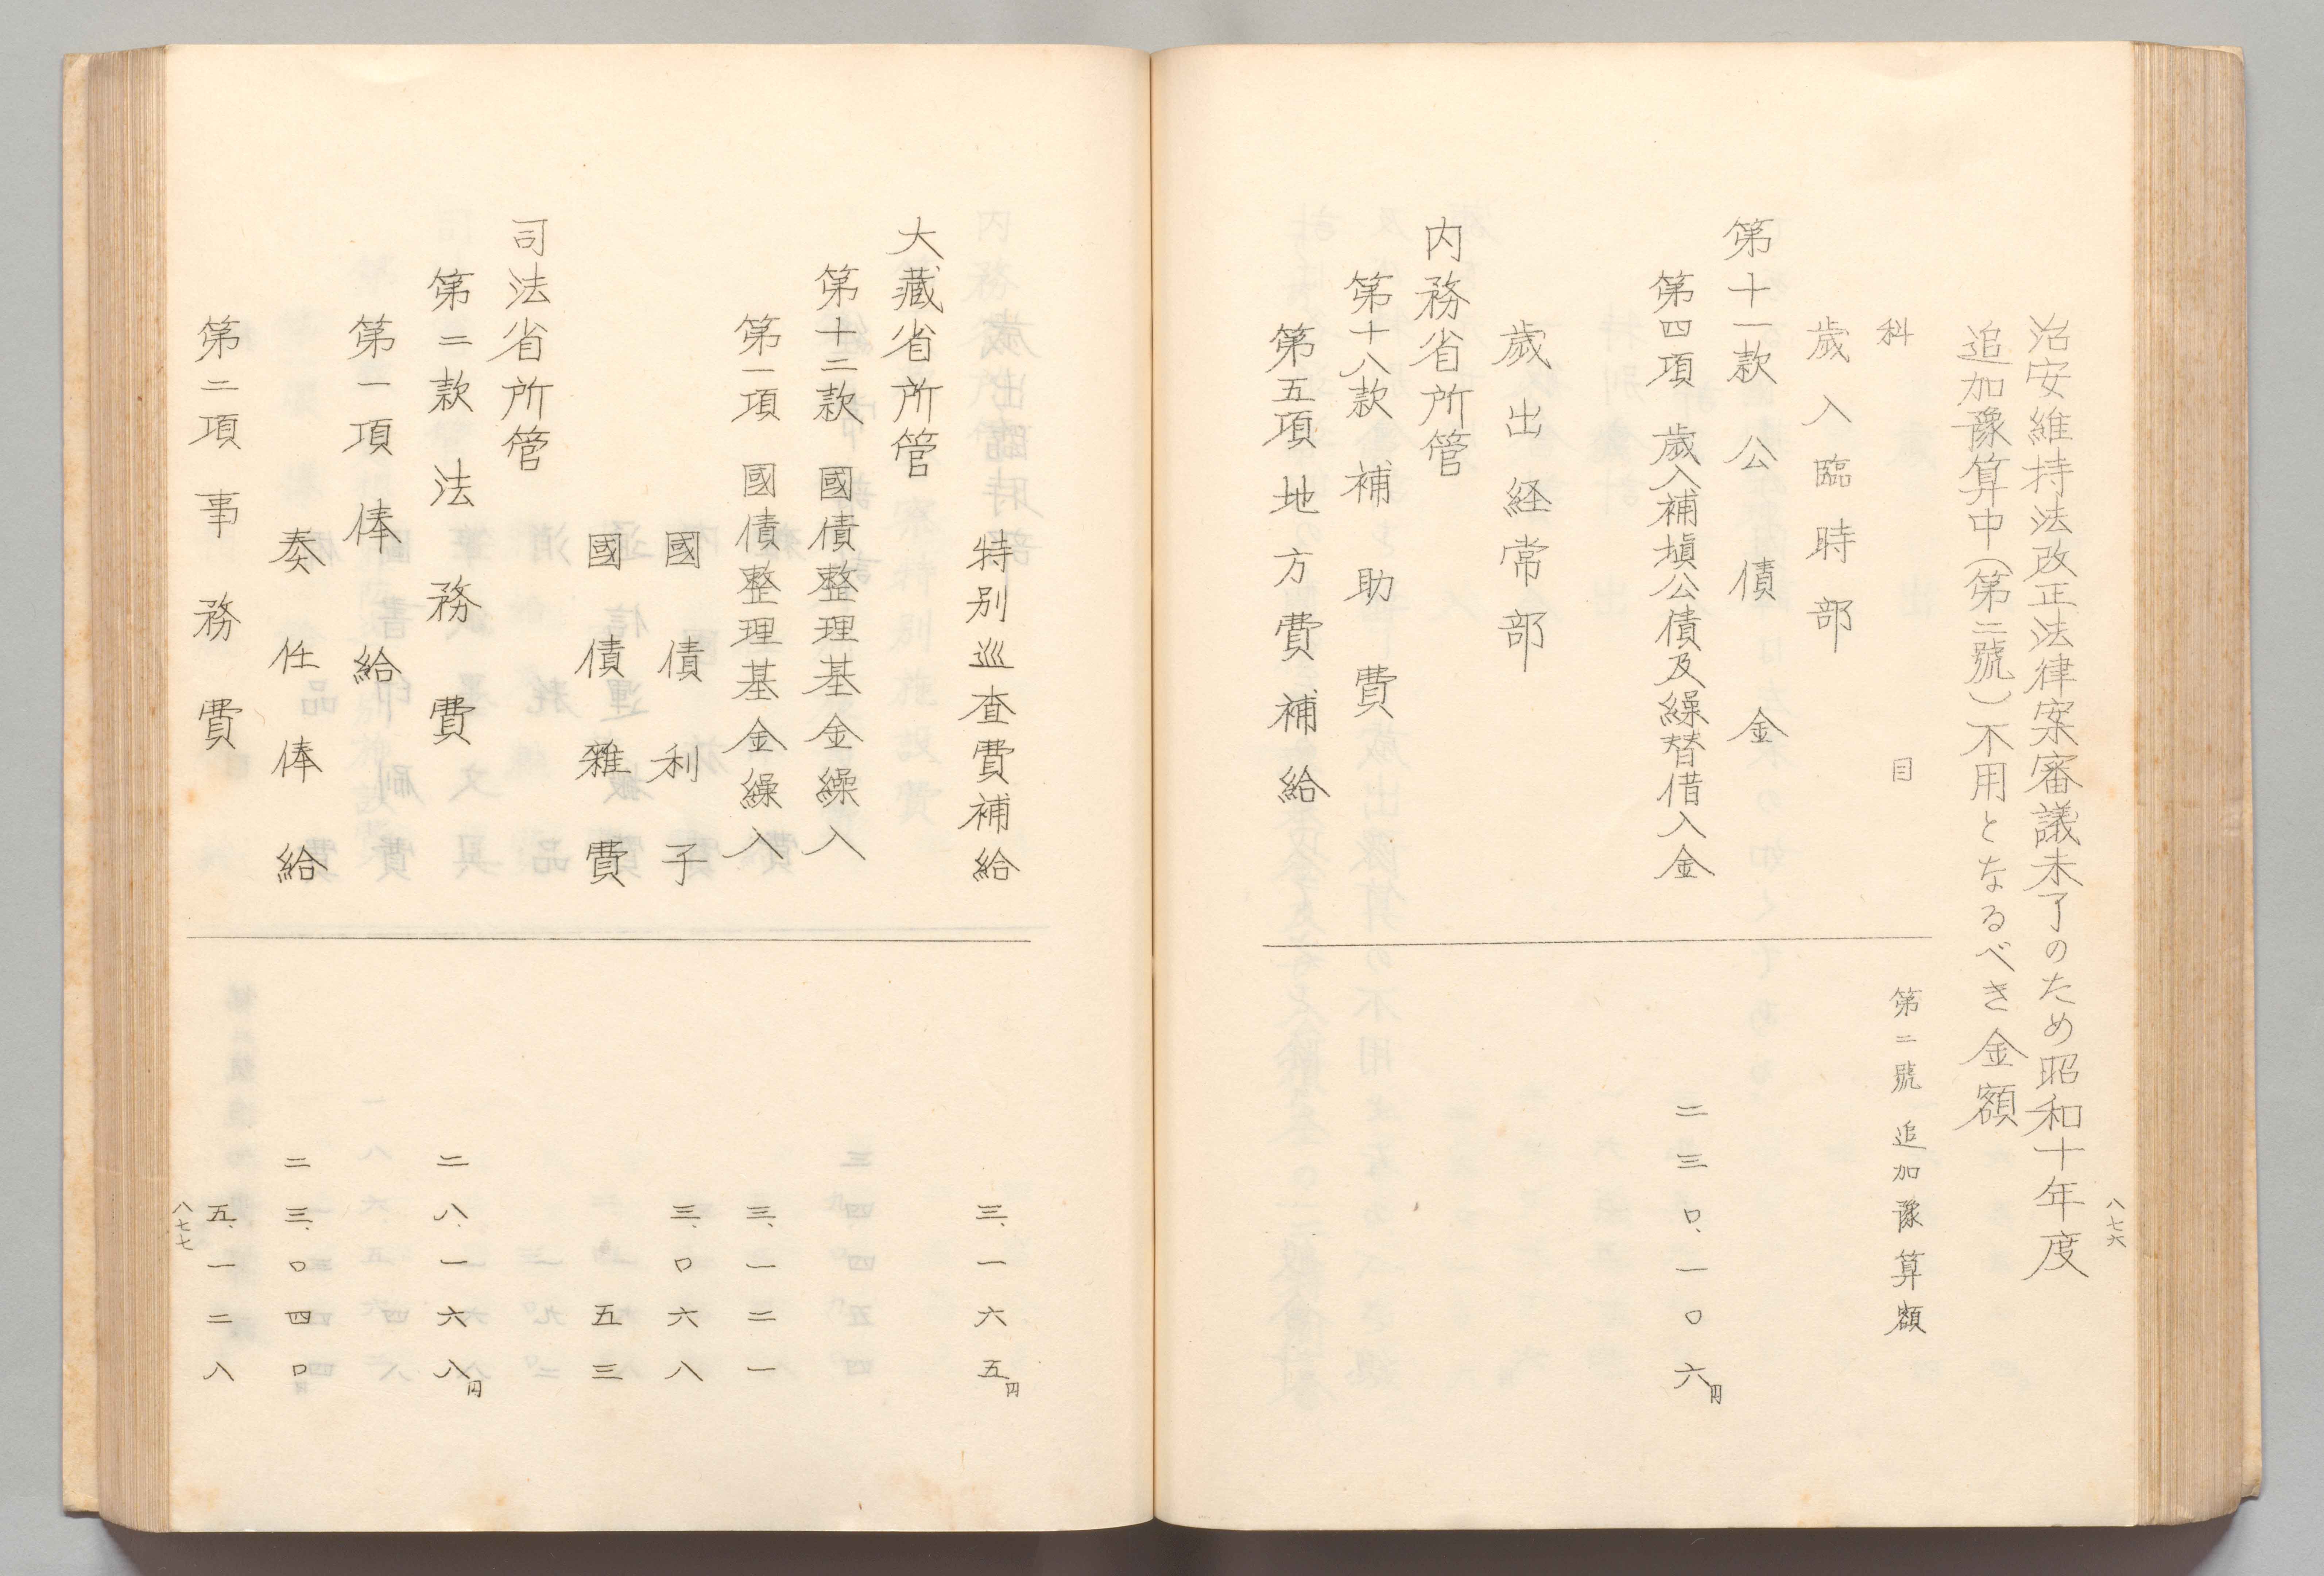 八七六
治安維持法改正法律案審議未了のため昭和十年度
追加豫算中(第二號)不用となるべき金額
科 目 第二號 追加豫算額
歳入臨時部
第十一款 公債金
第四項 歳入補塡公債及繰替借入金 二三〇、一〇六円
歳出経常部
内務省所管
第十八款 補助費
第五項 地方費補給
特別巡査費補給 三、一六五円
大藏省所管
第十二款 國債整理基金繰入
第一項 國債整理基金繰入 三、一二一
國債利子 三、〇六八
國債雜費 五三
司法省所管
第二款 法務費 二八、一六八円
第一項 俸給
奏任俸給 二三、〇四〇
第二項 事務費 五、一二八
八七七